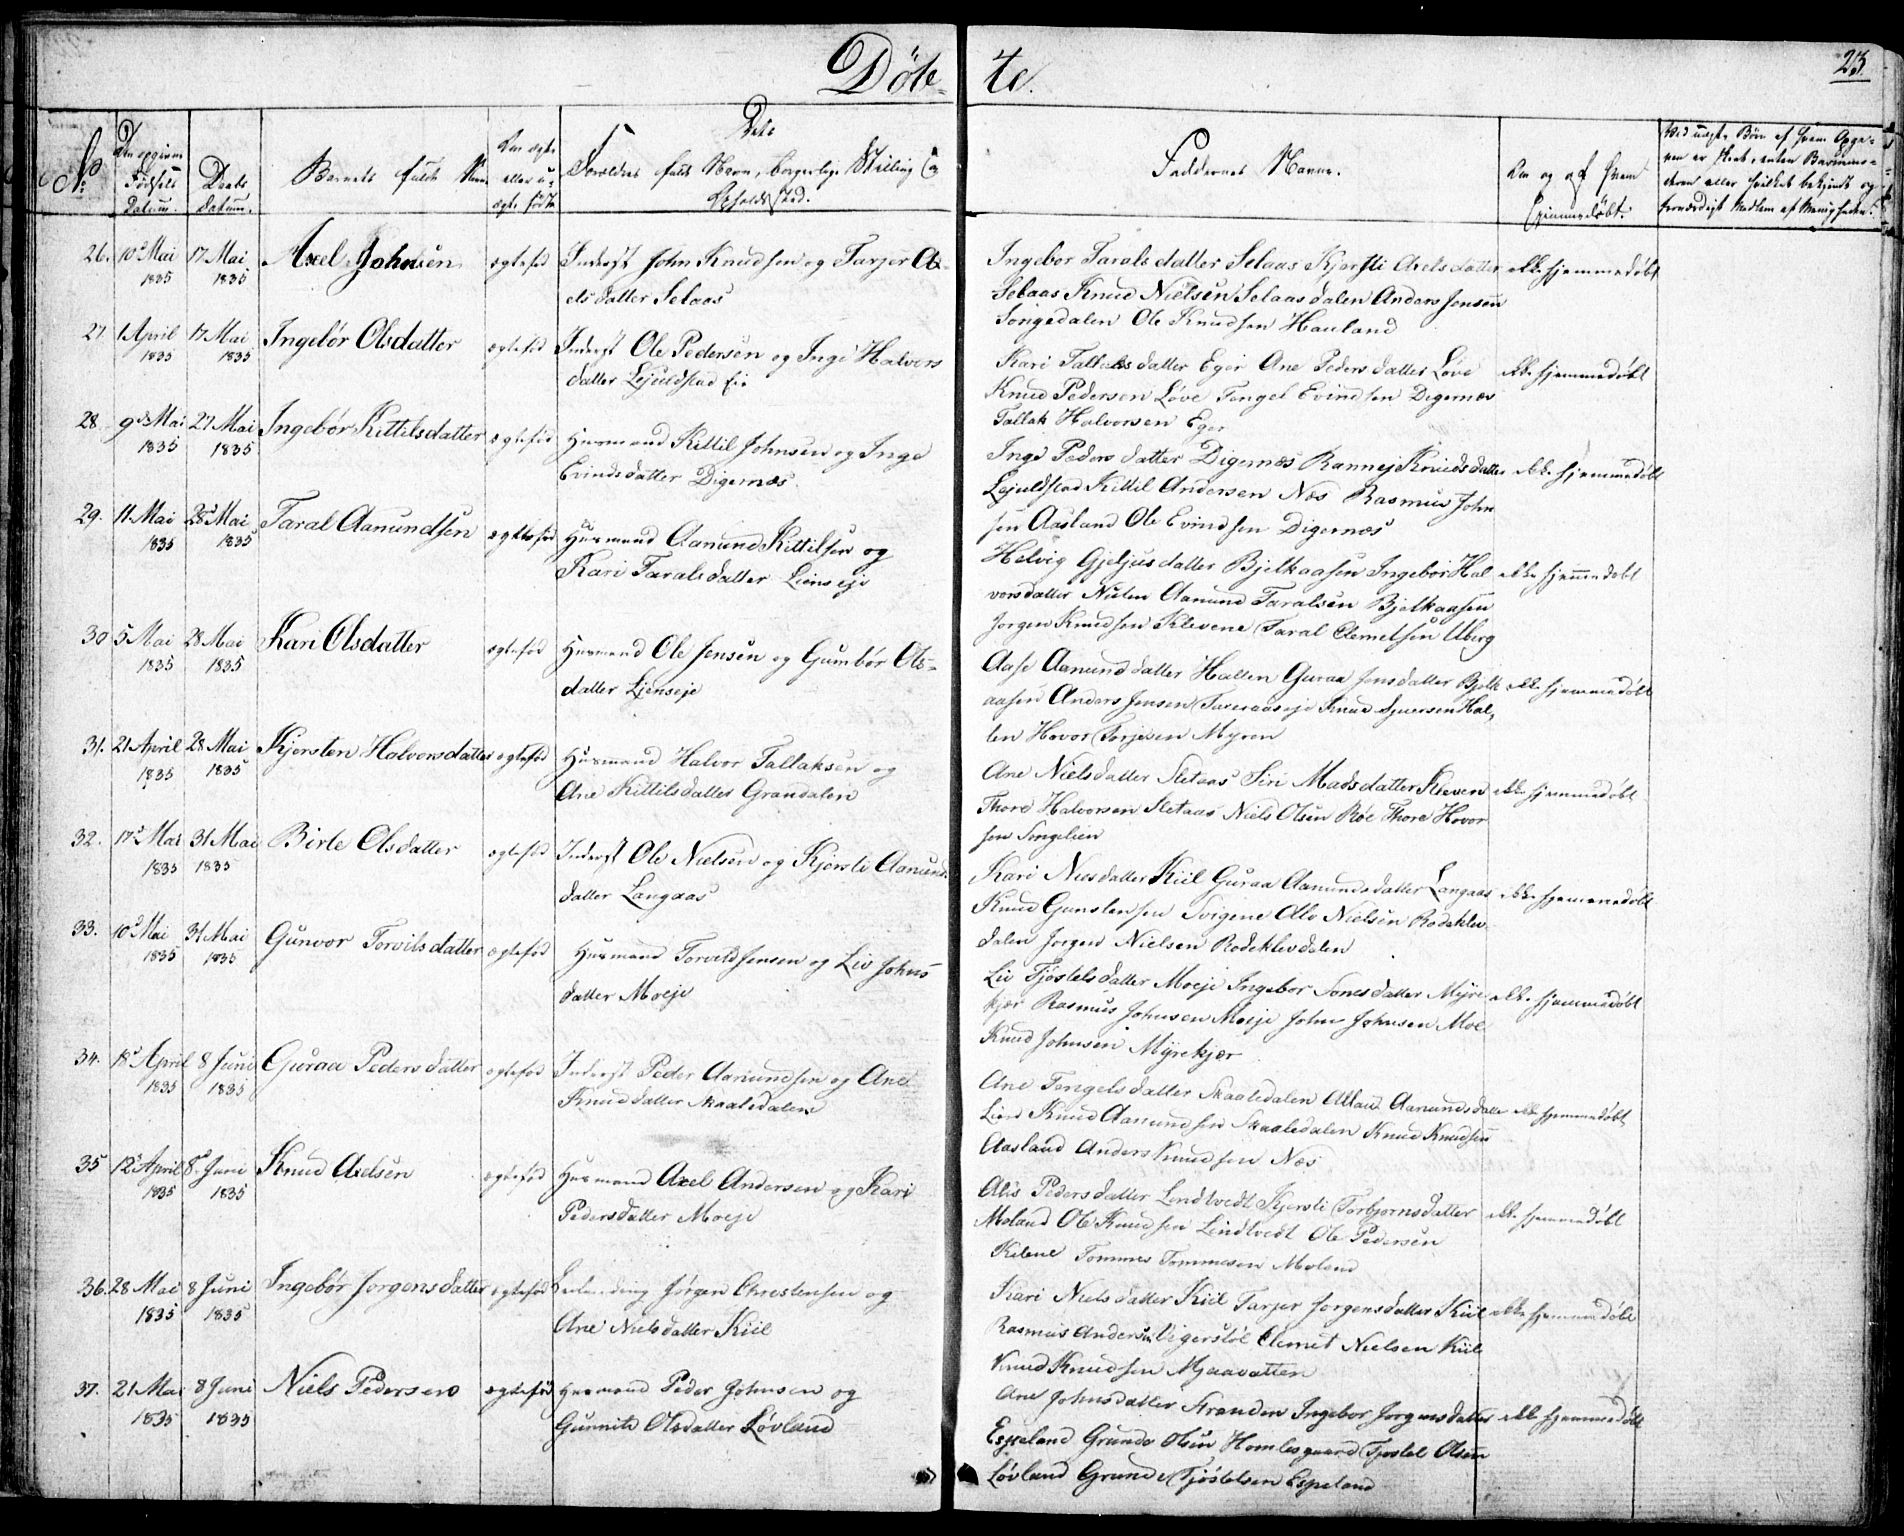 Døb- te.
23
No
Den opgivne Fødsels Datum.
Daabs Datum.
Barnets fulde Navn
Om ægte eller uægte født
Dets
Forældres fulde Navn, borgerlige Stilling og
Opholdssted.
Faddernes Navne.
Om og af hvem hjemmedøbt.
26. 10de Mai 1835 17 Mai 1835 Axel Johnsen ægtefød Inderst John Knudsen og Tarjer Ax-
els datter Selaas
Ingebor Taralsdatter Selaas Kjersti Axelsdatter ikke hjemmedøbt
Selaas Knud Nielsen Selaasdalen Anders Jensen
Songedalen Ole Knudsen Hauland
27 1 April 1835 17 Mai 1835 Ingebør Olsdatter ægtefød Inderst Ole Pedersen og Inge Halvors
datter Lejuldstad Eie
Kari Tallaksdatter Eger Ane Pedersdatter Løve ikke hjemmedøbt
Knud Pedersen Løve Tengel Evindsen Digernæs
Tallak Halvorsen Eger
28. 9de Mai 1835 27 Mai 1835 Ingebør Kittilsdatter ægtefød Husmand Kittil Johnsen og Inge
Evindsdatter Digernæs
Inge Pedersdatter Digernæs Rannej Knudsdatter ikke hjemmedøbt
Lejuldstad Kittil Andersen Næs Rasmus John
sen Aasland Ole Evindsen Digernæs
29. 11 Mai 1835 28 Mai 1835 Taral Aanundsen ægtefød Husmand Aanund Kittilsen og
Kari Taralsdatter Lienseje
Helvig Gjeljusdatter Bjelkaasen Ingebor Hal ikke hjemmedøbt
vorsdatter Aanund Taralsen Bjelkaasen
Jorgen Knudsen Klevene Taral Clemetsen Uberg
30 5 Mai 1835 28 Mai 1835 Kari Olsdatter ægtefød Husmand Ole Jensen og Gumbør Ols-
datter Ljenseje
Aase Aanundsdatter Hallen Guraa Jensdatter Bjelk ikke hjemmedøbt
aasen Anders Jensen Knud Hal,
len Hovor Torjesen Myren
31. 21 April 1835 28 Mai 1835 Kjersten Halvorsdatter ægtefød Husmand Halvor Tallaksen og
Ane Kittilsdatter Grandalen
Ane Nielsdatter Sletaas Siri Madsdatter Kleven ikke hjemmedøbt
Thore Halvorsen Sletaas Niels Olsen Røe Thore Hovor
sen Songelien
32. 17de Mai 1835 31 Mai 1835 Birte Olsdatter ægtefød Inderst Ole Nielsen og Kjersti Aanunds
datter Langaas
Kari Nilsdatter Kiil Guraa Aanundsdatter Langaas ikke hjemmedøbt
Knud Gunstensen Svigene Ole Nielsen Rodeklev
dalen Jorgen Nielsen Rodeklevdalen
33. 10de Mai 1835 31 Mai 1835 Gunvor Torvilsdatter ægtefød Husmand Torvild Jensen og Liv Johns
datter Moeje
Liv Tjøstelsdatter Moeje Ingebor Jonesdatter Myre ikke hjemmedøbt
kjær Rasmus Johnsen Moeje John Johnsen Moe
Knud Johnsen Myrekjær
34. 18de April 1835 8 Juni 1835 Guraa Pedersdatter ægtefød Inderst Peder Aanundsen og Ane
Knudsdatter Skaaledalen
Ane Tengelsdatter Skaaledalen Aanundsdatter ikke hjemmedøbt
Lien Knud Aanundsen Skaaledalen Knud Knudsen
Aasland Anders Knudsen Næs
35 12te April 1835 8de Juni 1835 Knud Axelsen ægtefød Husmand Axel Andersen og Kari
Pedersdatter Moeje
Alis Pedersdatter Lindtvedt Kjersti Torbjornsdatter ikke hjemmedøbt
Moland Ole Knudsen Lindtvedt Ole Pedersen
Kilene Tommes Tommesen Moland
36. 28 Mai 1835 8 Juni 1835 Ingebør Jorgensdatter ægtefød Jørgen Christensen og
Ane Nielsdatter Kiil
Kari Nielsdatter Kiil Tarjer Jorgensdatter Kiil ikke hjemmedøbt
Rasmus Andersen Vigerstøl Clemet Nielsen Kiil
Knud Knudsen Mjaavatten
37. 21 Mai 1835 8 Juni 1835 Niels Pedersen ægtefød Husmand Peder Johnsen og
Gunnild Olsdatter Løvland
Ane Johnsdatter Stranden Ingebor Jorgensdatter ikke hjemmedøbt
Espeland Grunde Olsen Homlesgaard Tjostel Olsen
Løvland Grunde Tjøstelsen Espeland